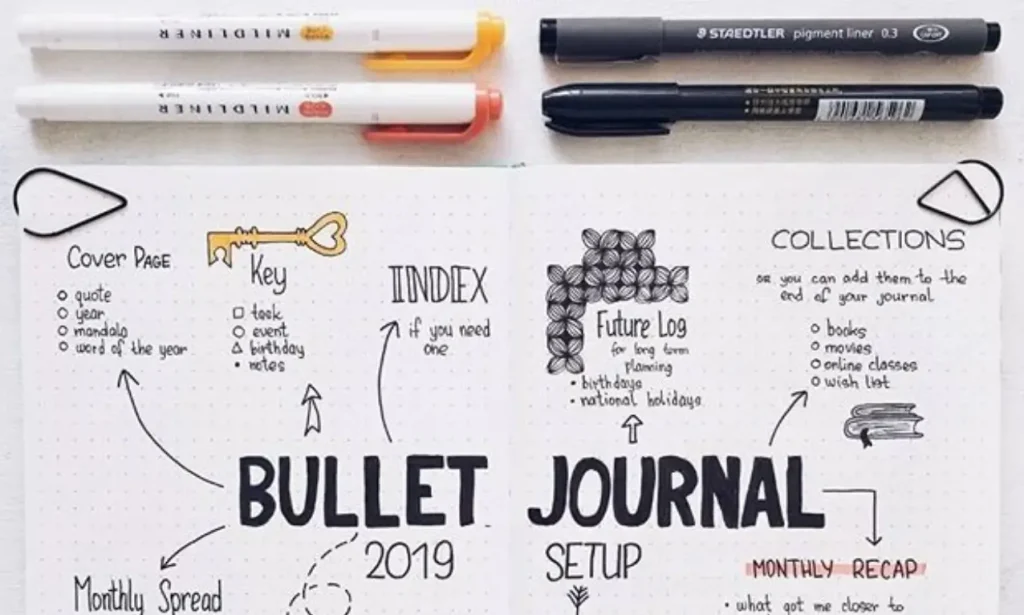 MILDLINER
STAEDTLER pigment liner 0.3
MILDLINER
Cover PAGE
quote
year
mandala
word of the year
Key
task
event
birthday
notes
INDEX
if you need
one
Future Log
for long term
planning
birthdays
national holidays
COLLECTIONS
or you can add them to the
end of your journal
books
movies
online classes
wish list
BULLET JOURNAL
2019 SETUP
Monthly Spread
MONTHLY RECAP
what got me closer to